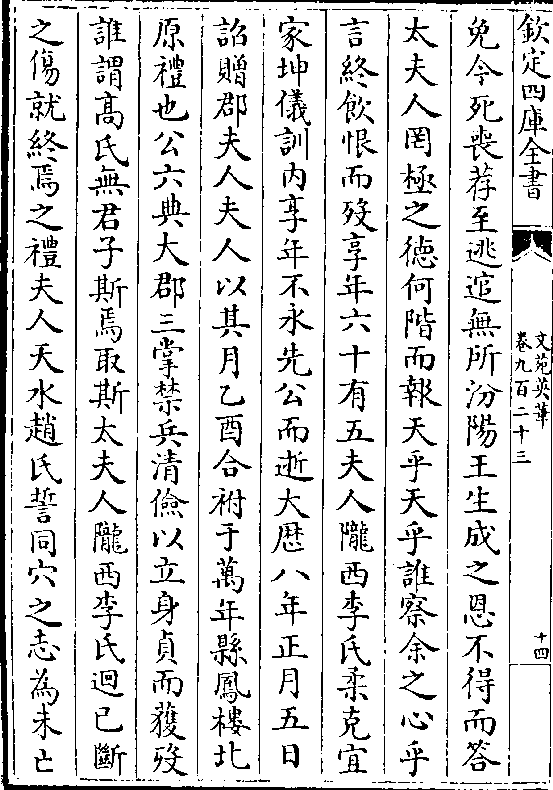 欽定四庫全書
文苑英華
卷九百二十三
十四
免今死喪荐至逃逭無所汾陽王生成之恩不得而答
太夫人罔極之徳何階而報天乎天乎誰察余之心乎
言終飲恨而歿享年六十有五夫人隴西李氏柔克宜
家坤儀訓内享年不永先公而逝大厯八年正月五日
詔贈郡夫人夫人以其月乙酉合祔于萬年縣鳳樓北
原禮也公六典大郡三掌禁兵清儉以立身貞而獲歿
誰謂髙氏無君子斯焉取斯太夫人隴西李氏迴已斷
之傷就終焉之禮夫人天水趙氏誓同穴之志為未亡